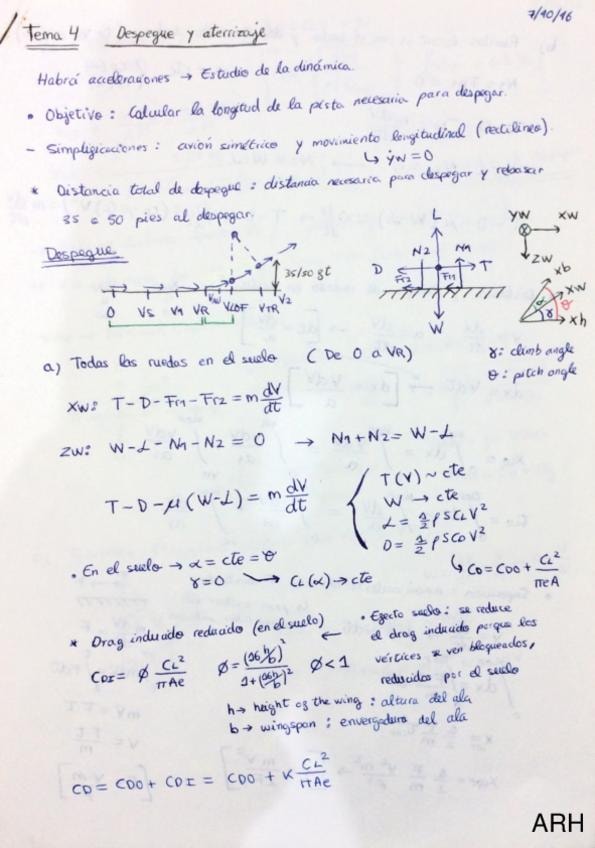 7/10/16
Tema 4 Despegue y aterrizaje
Habrá aceleraciones → Estudio de la dinámica.
• Objetivo : Calcular la longitud de la pista necesaria para despegar.
- Simplificaciones : avión simétrico y movimiento longitudinal (rectilíneo).
↳ ẏw = 0
* Distancia total de despegue : distancia necesaria para despegar y rebasar
35 o 50 pies al despegar.
Despegue
35/50 ft
0 VS V1 VR VLOF VTR V2
L
D N2 N1 T
Fr2 Fr1
W
yw xw
zw
xb
xw
α γ θ
xh
γ: climb angle
θ: pitch angle
a) Todas las ruedas en el suelo (De 0 a VR)
xw: T - D - Fr1 - Fr2 = m dV/dt
zw: W - L - N1 - N2 = 0 → N1 + N2 = W - L
T - D - μ(W - L) = m dV/dt
T(V) ~ cte
W → cte
L = 1/2 ρSCLV²
D = 1/2 ρSCDV²
↳ CD = CD0 + CL²/πeA
• En el suelo → α = cte = θ
γ = 0 → CL(α) → cte
* Drag inducido reducido (en el suelo) ←
CDI = Ø CL²/πAe Ø = (16h/b)²/1+(16h/b)² Ø < 1
• Efecto suelo : se reduce
el drag inducido porque los
vórtices se ven bloqueados,
reducidos por el suelo
h → height of the wing : altura del ala
b → wingspan : envergadura del ala
CD = CD0 + CDI = CD0 + K CL²/πAe
ARH